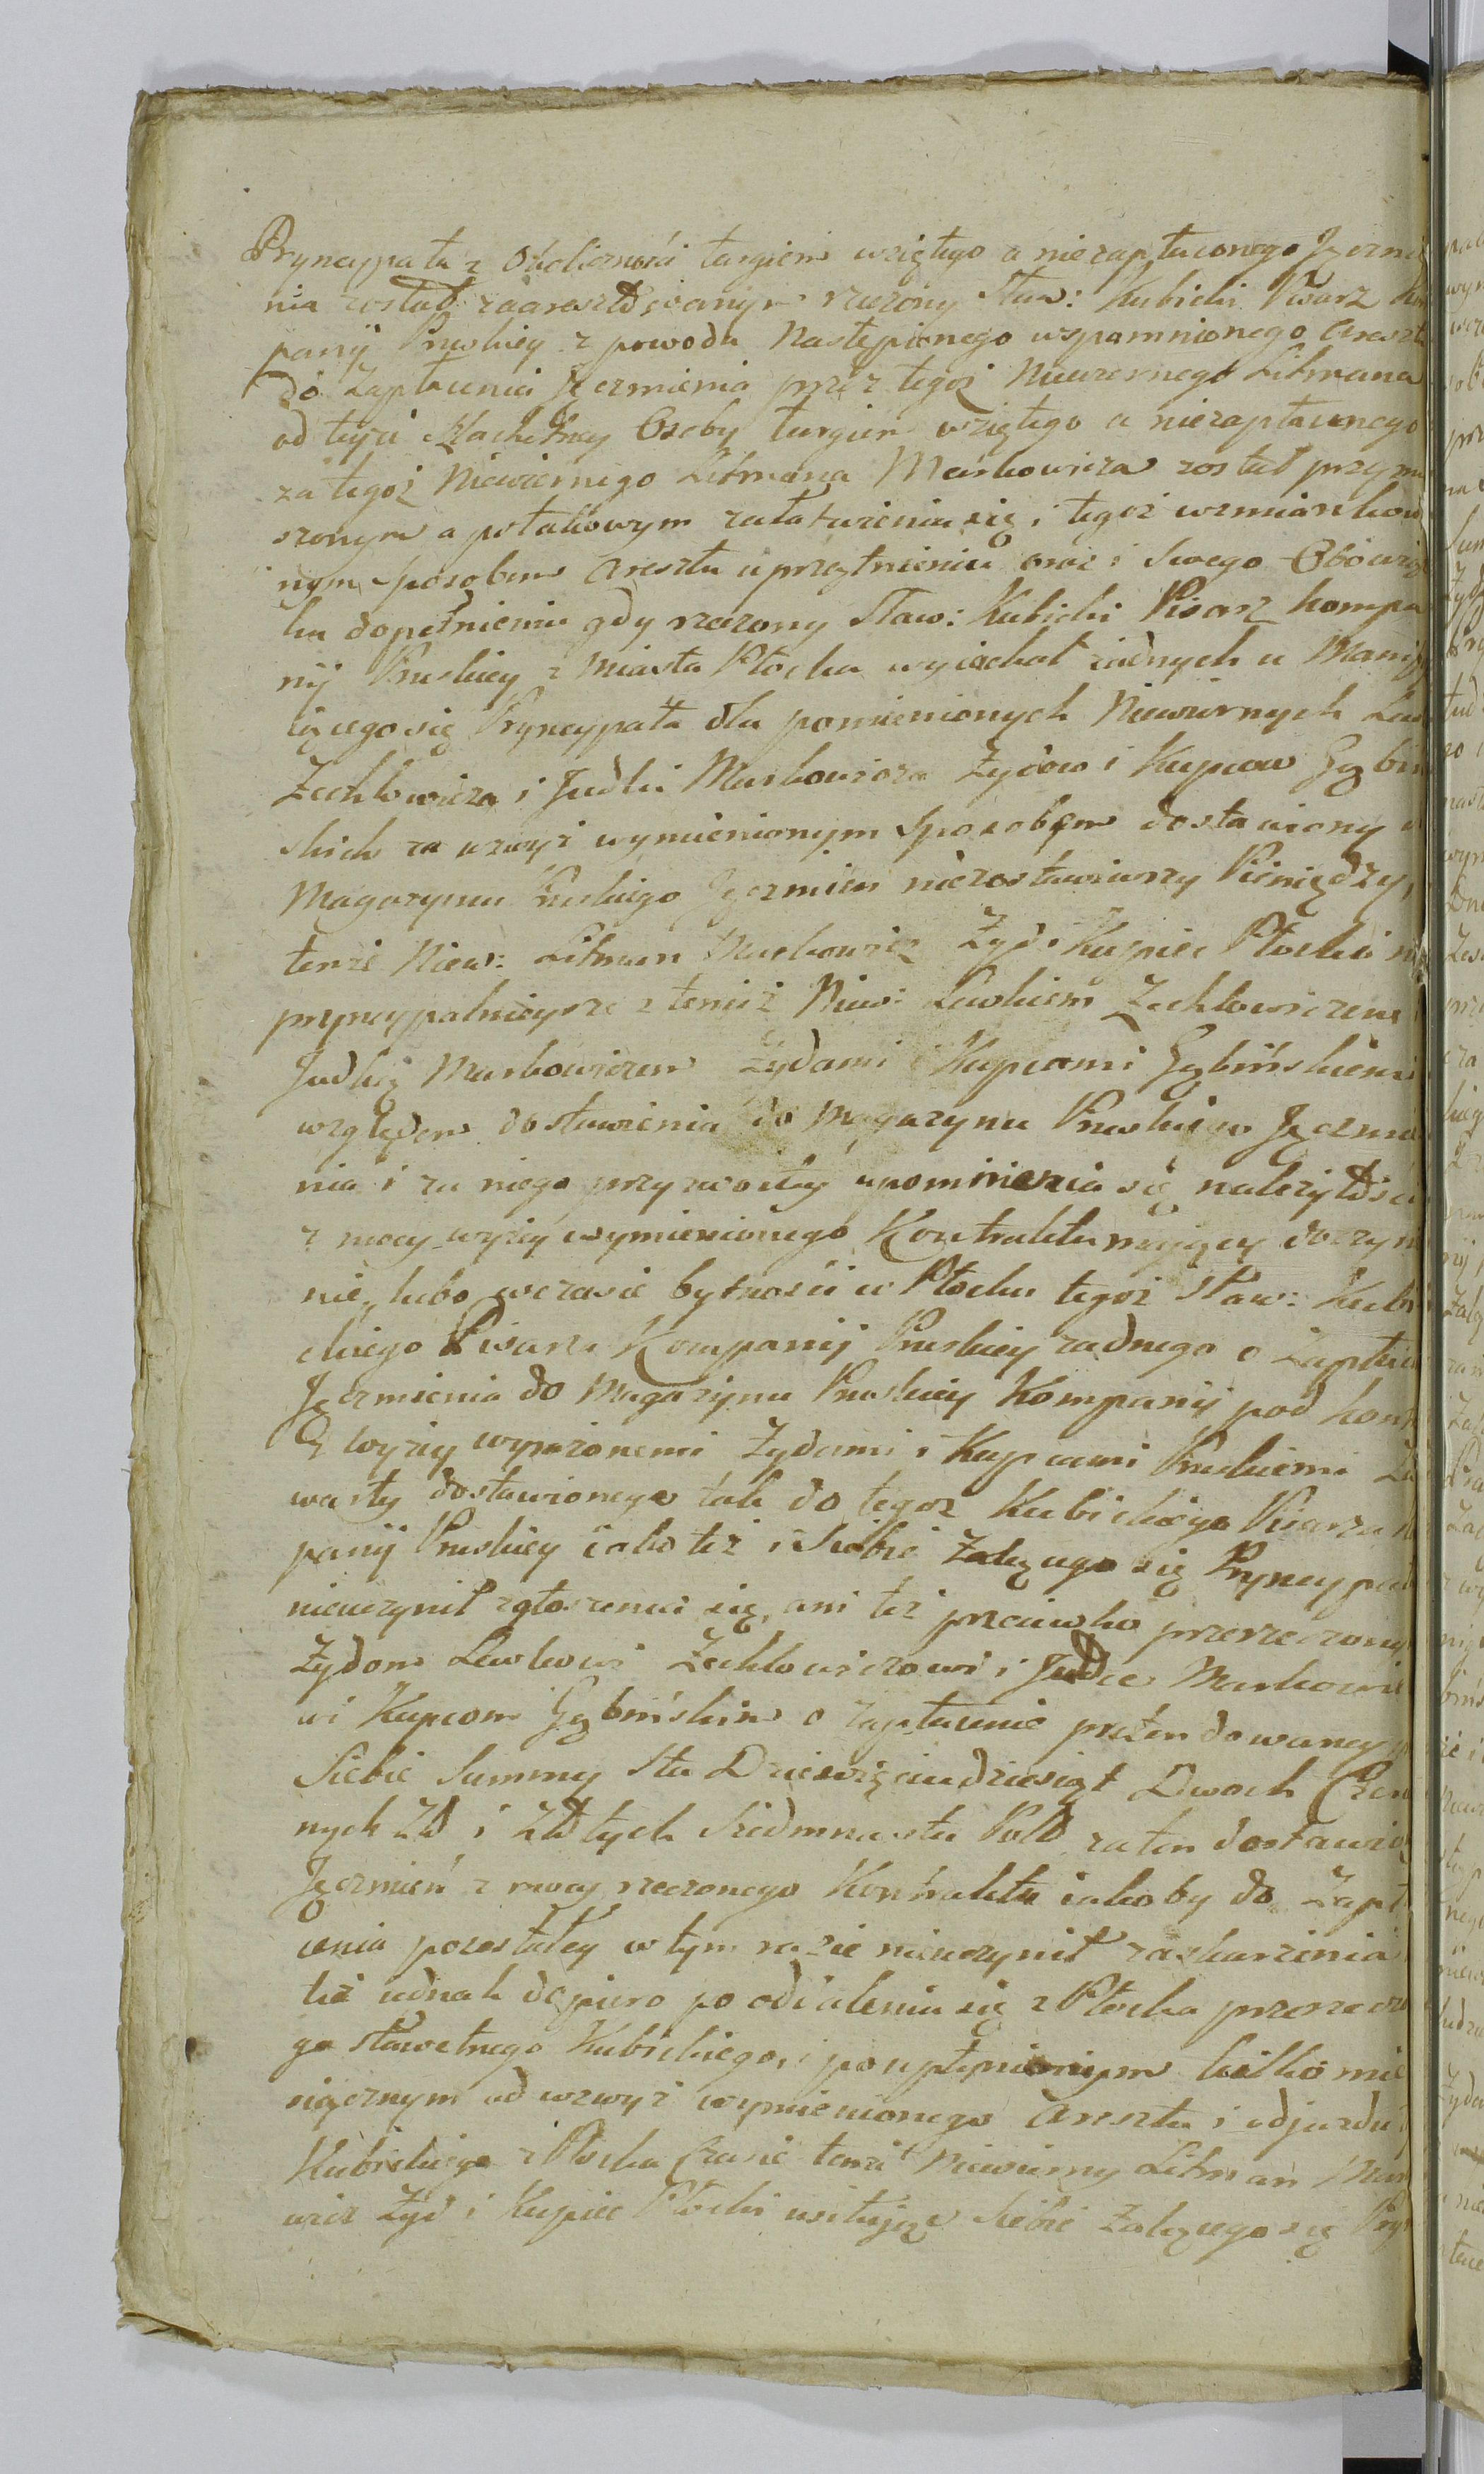 Pryncypała z Okoliczności targiem wziętego a niezapłaconego Jęczmi
nia został zaaresztowanym rzeczony Sław: Kubicki Pisarz Kom
panij Pruskiey z powodu Nastąpionego wspomnionego Areszt
do Zapłacenia Jęczmienia przez tegoż Niewiernego Litmana
od teyże Szlachetney Osoby targiem wziętego a niezapłaconego
za tegoż Niewiernego Litmana Markowicza został przymu
szonym a po takowym załatwieniu się i tegoż wzmiankowa
nym sposobem Aresztu uprzątnieniu oraz i Swego Obowiąz
ku dopełnieniu gdy rzeczony Sław: Kubicki Pisarz Kompa
nij Pruskiey z Miasta Płocka wyiechał żadnych u Manife
iącego się Pryncypała dla pomienionych Niewiernych Lew
Zechlowicza i Judki Markowicza Żydów i Kupców Gąbiń
skich za wzwyż wymienionym Sposobem dostawiony d
Magazynu Pruskiego Jęczmień niezostawiwszy Pieniędzy,
tenże Niew: Litman Markowicz Żyd i Kupiec Płocki na
pryncypalnieysze z temiż Niew: Lewkiem Zechlowiczem i
Judką Markowiczem Żydami i Kupcami Gąbińskiemi
względem dostawienia do Magazynu Pruskiego Jęczmie
nia i za niego przyzwoitey upominienia się należytości
z mocy wyżey wymienionego Kontraktu maiący do czyn
nie, lubo w czasie bytności w Płocku tegoż Sław: Kubi
ckiego Pisarza Kompanij Pruskiey żadnego o Zapłace
Jęczmienia do Magazynu Pruskiey Kompanij pod Kont
z wyżey wyrażonemi Żydami i Kupcami Pruskiemi Za
warty dostawionego tak do tegoż Kubickiego Pisarza K
panij Pruskiey iako też i Siebie Żalącego się Pryncypał
nieuczynił zgłoszenia się, ani też przeciwko przerzeczony
Żydom Lewkowi Zechlowiczowi i Judce Markowi
wi Kupcom Gąbińskim o zapłacenie pretendowaney p
Siebie Summy Sta Dziewięciudziesiąt Dwoch Czer
nych Zł i Złłtych Siedmnastu Pols za ten dostawio
Jęczmień z mocy rzeczonego Kontraktu iakoby do Zapł
cenia pozostałey w tym razie nieuczynił zaskarżenia
też iednak dopiero po oddaleniu się z Płocka przerzeczo
go Sławetnego Kubickiego, i po upłynionym kilko mie
sięcznym od wzwyż wymienionego Aresztu i odjazdu
Kubickiego z Płocka Czasie tenże Niewierny Litman Mar
wicz Żyd i Kupiec Płocki usiłuiąc Siebie Żalącego się Pry